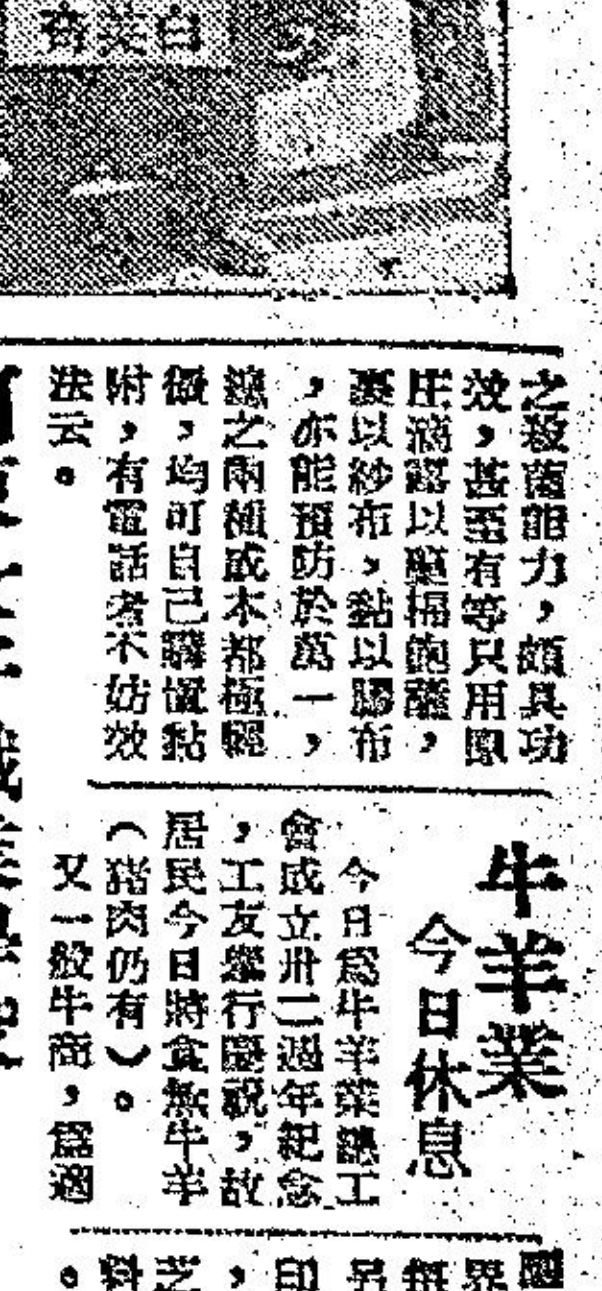 白英奇
之殺菌能力，頗具功
效，甚至有等只用原
庄滴露以棉飽醮，
裹以紗布，黏以膠布
，亦能預防於萬一，
之兩種或本都極輕
便，均可自己購置黏
附，有電話者不妨效
法云。
牛羊業
今日休息
今日為牛羊業職工
會成立卅二週年紀念
，工友舉行慶祝，故
居民今日將食無牛羊
（猪肉仍有）。
又一般牛商，為適
界
另
印
，
芝
料
。